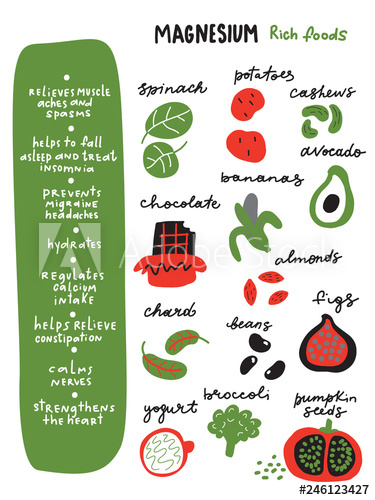 MAGNESIUM Rich foods
RELIEVES MUSCLE
ACHES AND
SPASMS
HELPS TO FALL
ASLEEP AND TREAT
INSOMNIA
PREVENTS
MIGRAINE
HEADACHES
HYDRATES
REGULATES
CALCIUM
INTAKE
HELPS RELIEVE
CONSTIPATION
CALMS
NERVES
STRENGTHENS
THE HEART
spinach
potatoes
cashews
avocado
bananas
chocolate
almonds
figs
chard
beans
broccoli
yogurt
pumpkin
seeds
Adobe Stock
#246123427